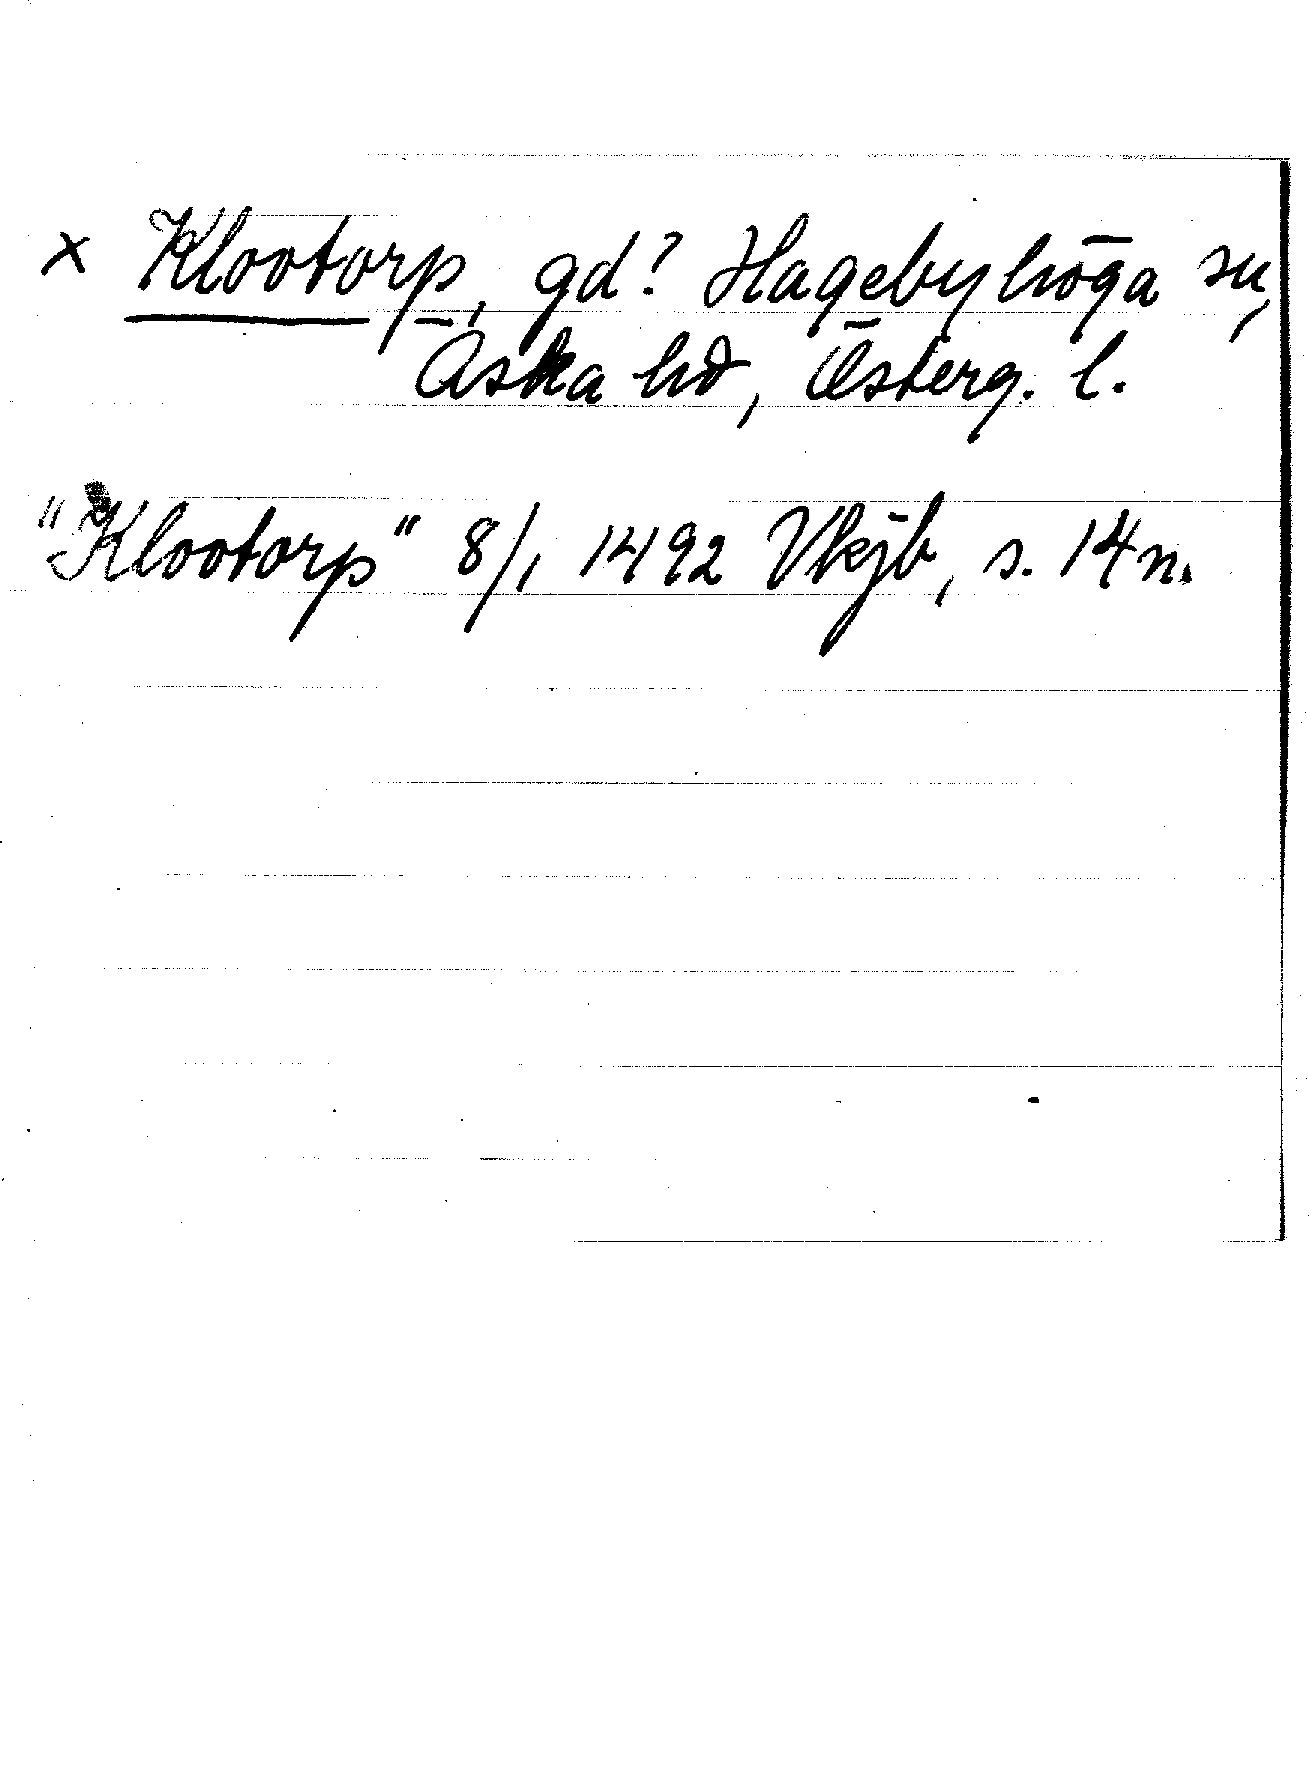 × Klootorp, gd? Hagebyhöga sn,
Aska hd, Österg. l.
"Klootorp" 8/1 1492 Vkjb, s. 14 n.